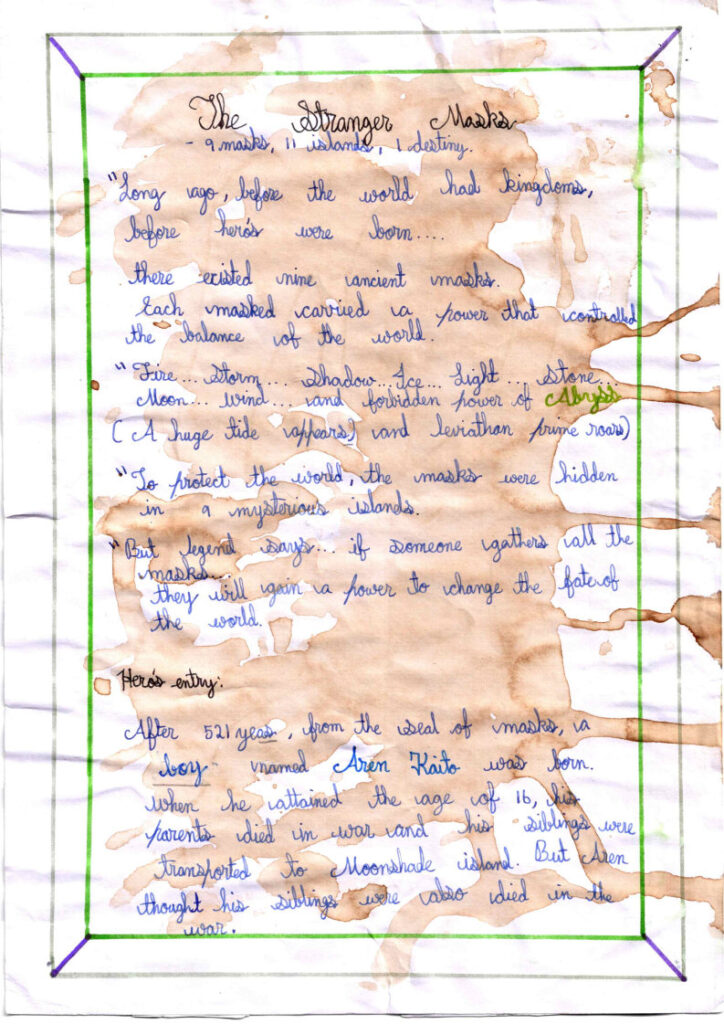 The Stranger Masks
- 9 masks, 11 islands, 1 destiny.
"Long ago, before the world had kingdoms,
before hero's were born....
there existed nine ancient masks.
Each masked carried a power that controlled
the balance of the world.
"Fire... Storm... Shadow... Ice... Light... Stone...
Moon... wind... and forbidden power of Abryss
(A huge tide appears) and leviathan prime roars)
"To protect the world, the masks were hidden
in 9 mysterious islands.
"But legend says... if someone gathers all the
masks...
they will gain a power to change the fate of
the world.
Hero's entry:
After 521 yeas, from the seal of masks, a
boy - named Aren Kaito was born.
When he attained the age of 16, his
parents died in war and his siblings were
transported to Moonshade island. But Aren
thought his siblings were also died in the
war.